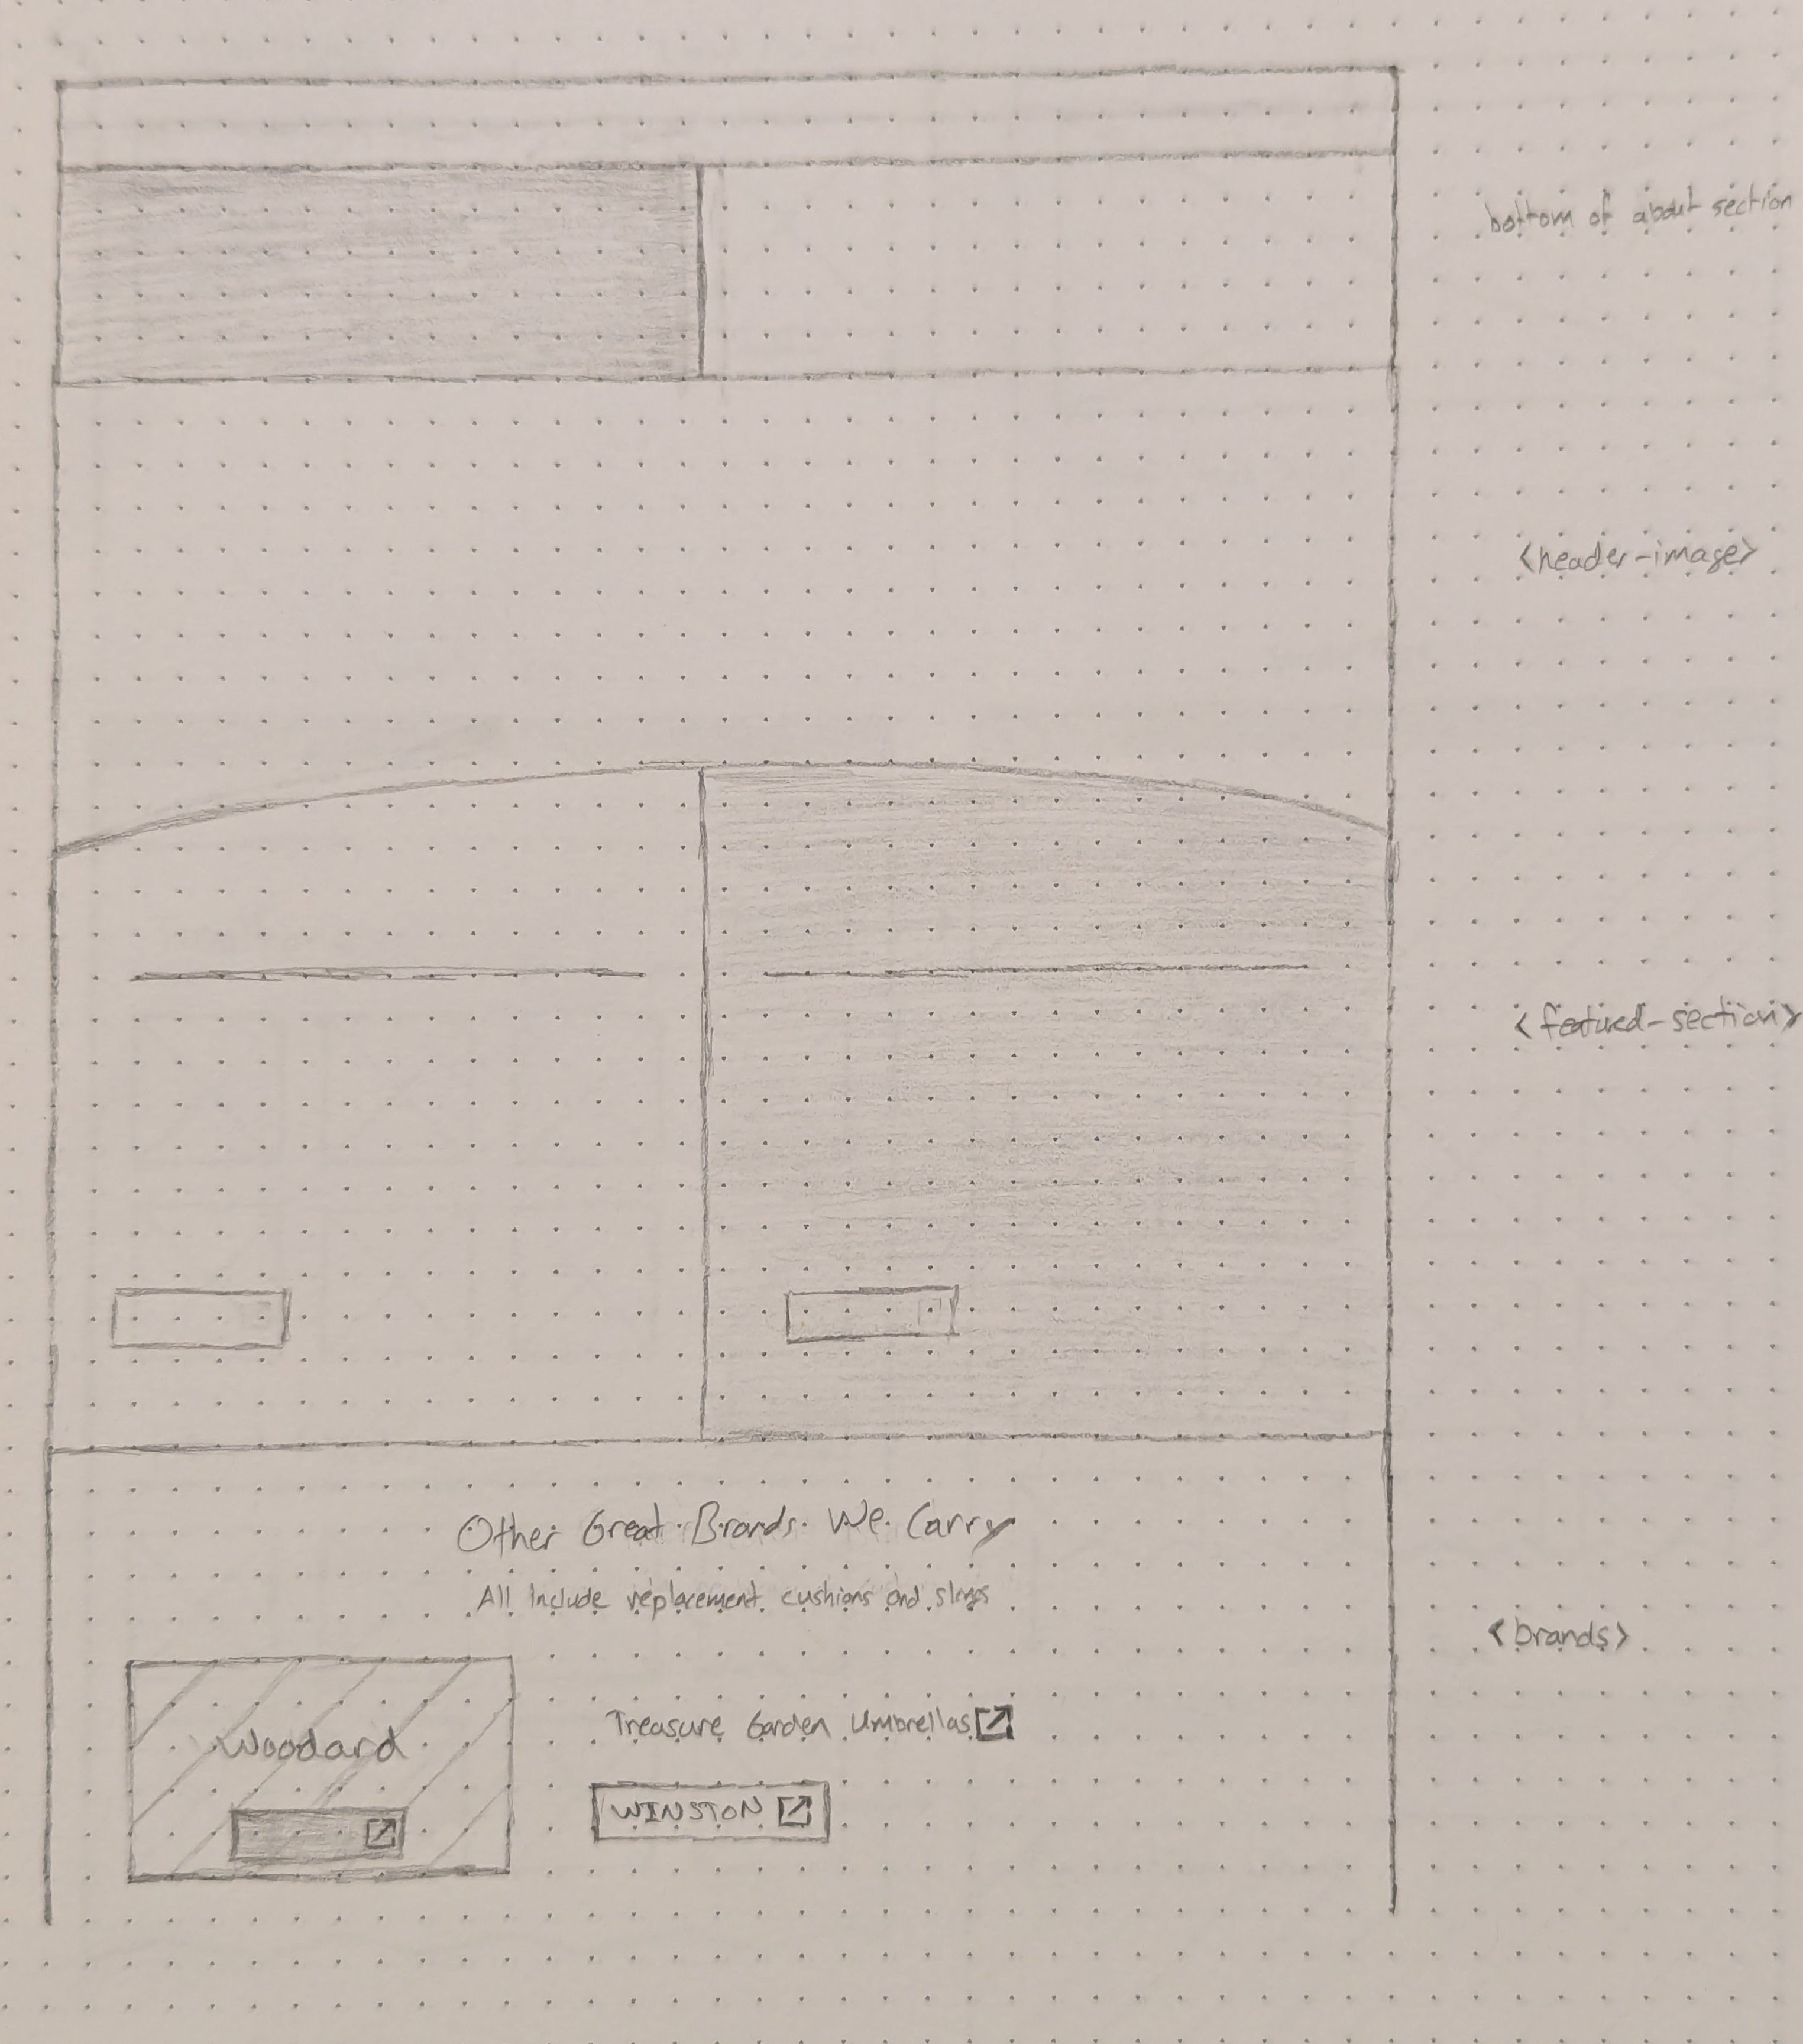 bottom of about section
<header-image>
<featured-section>
Other Great Brands We Carry
All Include replacement cushions and slings
<brands>
Woodard
Treasure Garden Umbrellas
WINSTON